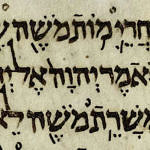 חֲרֵי מוֹת מֹשֶׁה ע
אמֶר יְהוָה אֶל יְ
מְשָׁרֵת מֹשֶׁה לֵא